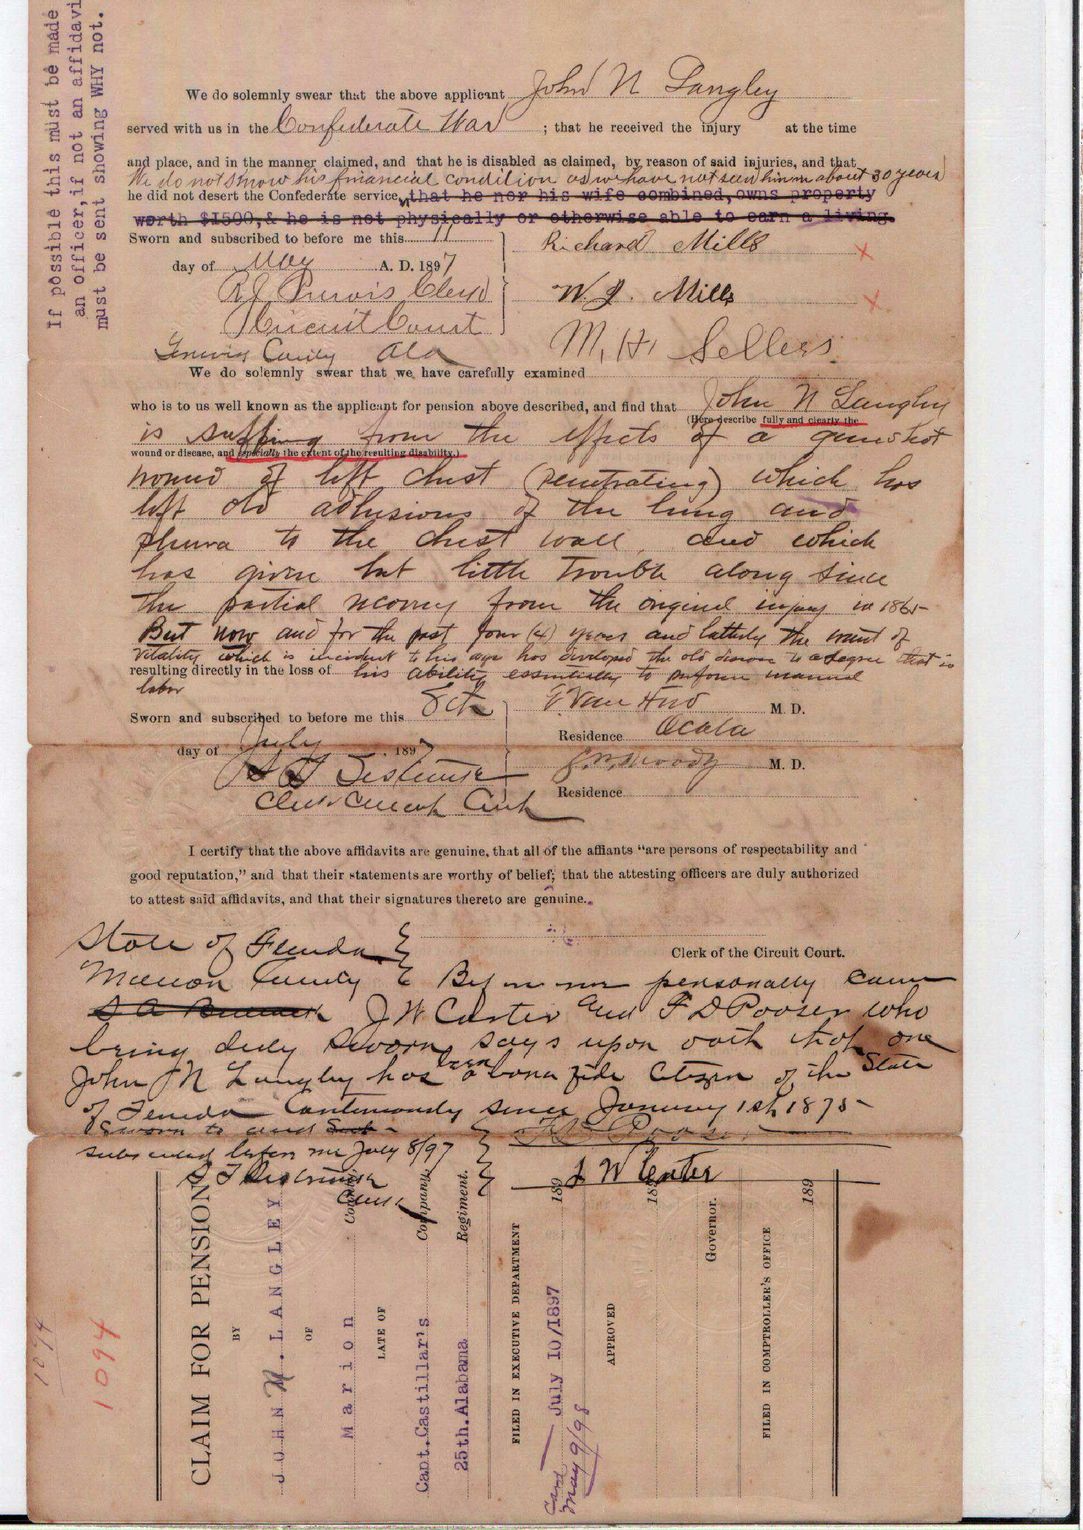 If possible this must be made
an officer, if not an affidavi
must be sent showing WHY not.
We do solemnly swear that the above applicant John N Langley
served with us in the Confederate War ; that he received the injury at the time
and place, and in the manner claimed, and that he is disabled as claimed, by reason of said injuries, and that
We do not know his financial condition as we have not seen him in about 30 years
he did not desert the Confederate service, that he nor his wife combined, owns property
worth $1500, & he is not physically or otherwise able to earn a living.
Sworn and subscribed to before me this 11
day of May A. D. 1897
R J Purvis Clerk
Circuit Court
County Ala
Richard Mills x
W. J. Mills x
M. H. Sellers.
We do solemnly swear that we have carefully examined
who is to us well known as the applicant for pension above described, and find that John N Langley
(Here describe fully and clearly the
is suffering from the effects of a gunshot
wound or disease, and especially the extent of the resulting disability.)
wound of left chest (penetrating) which has
left old adhesions of the lung and
pleura to the chest wall, and which
has given but little trouble along since
the partial recovery from the original injury in 1865
But now and for the past four (4) years and latterly the want of
vitality which is incident to his age has developed the old disease to a degree that is
resulting directly in the loss of his ability essentially to perform manual
labor
Sworn and subscribed to before me this 8th
day of July 1897
Clerk Circuit Court
M. D.
Residence Ocala
M. D.
Residence
I certify that the above affidavits are genuine, that all of the affiants "are persons of respectability and
good reputation," and that their statements are worthy of belief; that the attesting officers are duly authorized
to attest said affidavits, and that their signatures thereto are genuine.
Clerk of the Circuit Court.
State of Florida
Marion County Before me personally came
J W Carter and F D Pooser who
being duly sworn, says upon oath that one
John N Langley has been a bona fide Citizen of the State
of Florida Continuously since January 1st 1875
Sworn to and Sub
subscribed before me July 8/97
Clerk
F D Pooser
J W Carter
CLAIM FOR PENSION
BY
JOHN N. LANGLEY
OF
Marion County
LATE OF
Capt. Castillar's Company
25th. Alabama Regiment.
FILED IN EXECUTIVE DEPARTMENT
July 10/1897 189
May 9/98
APPROVED
189
Governor.
FILED IN COMPTROLLER'S OFFICE
189
1094
1094